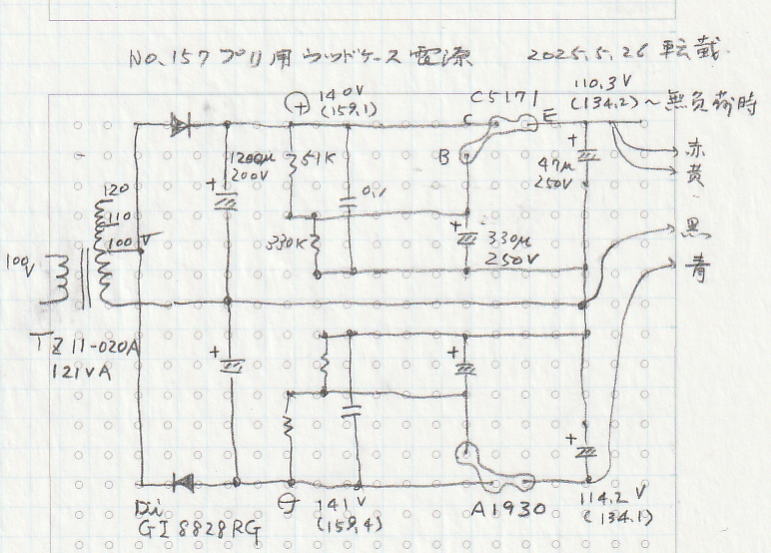 No.157 プリ用 ウッドケース 電源 2025.5.26 転載
⊕ 140V
(159.1)
C5171
110.3V
(134.2)〜無負荷時
C
E
B
1200μ
200V
51K
0.1
47μ
250V
赤
黄
120
110
100V
100V
330K
330μ
250V
黒
青
TZ11-020A
121VA
Di
GI8828RG
⊖ 141V
(159.4)
A1930
114.2V
(134.1)